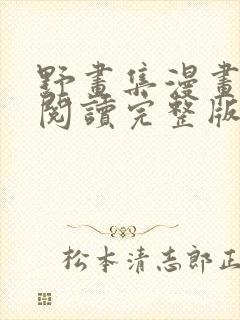 野畫集漫畫
閱讀完整版
松本清志郎正